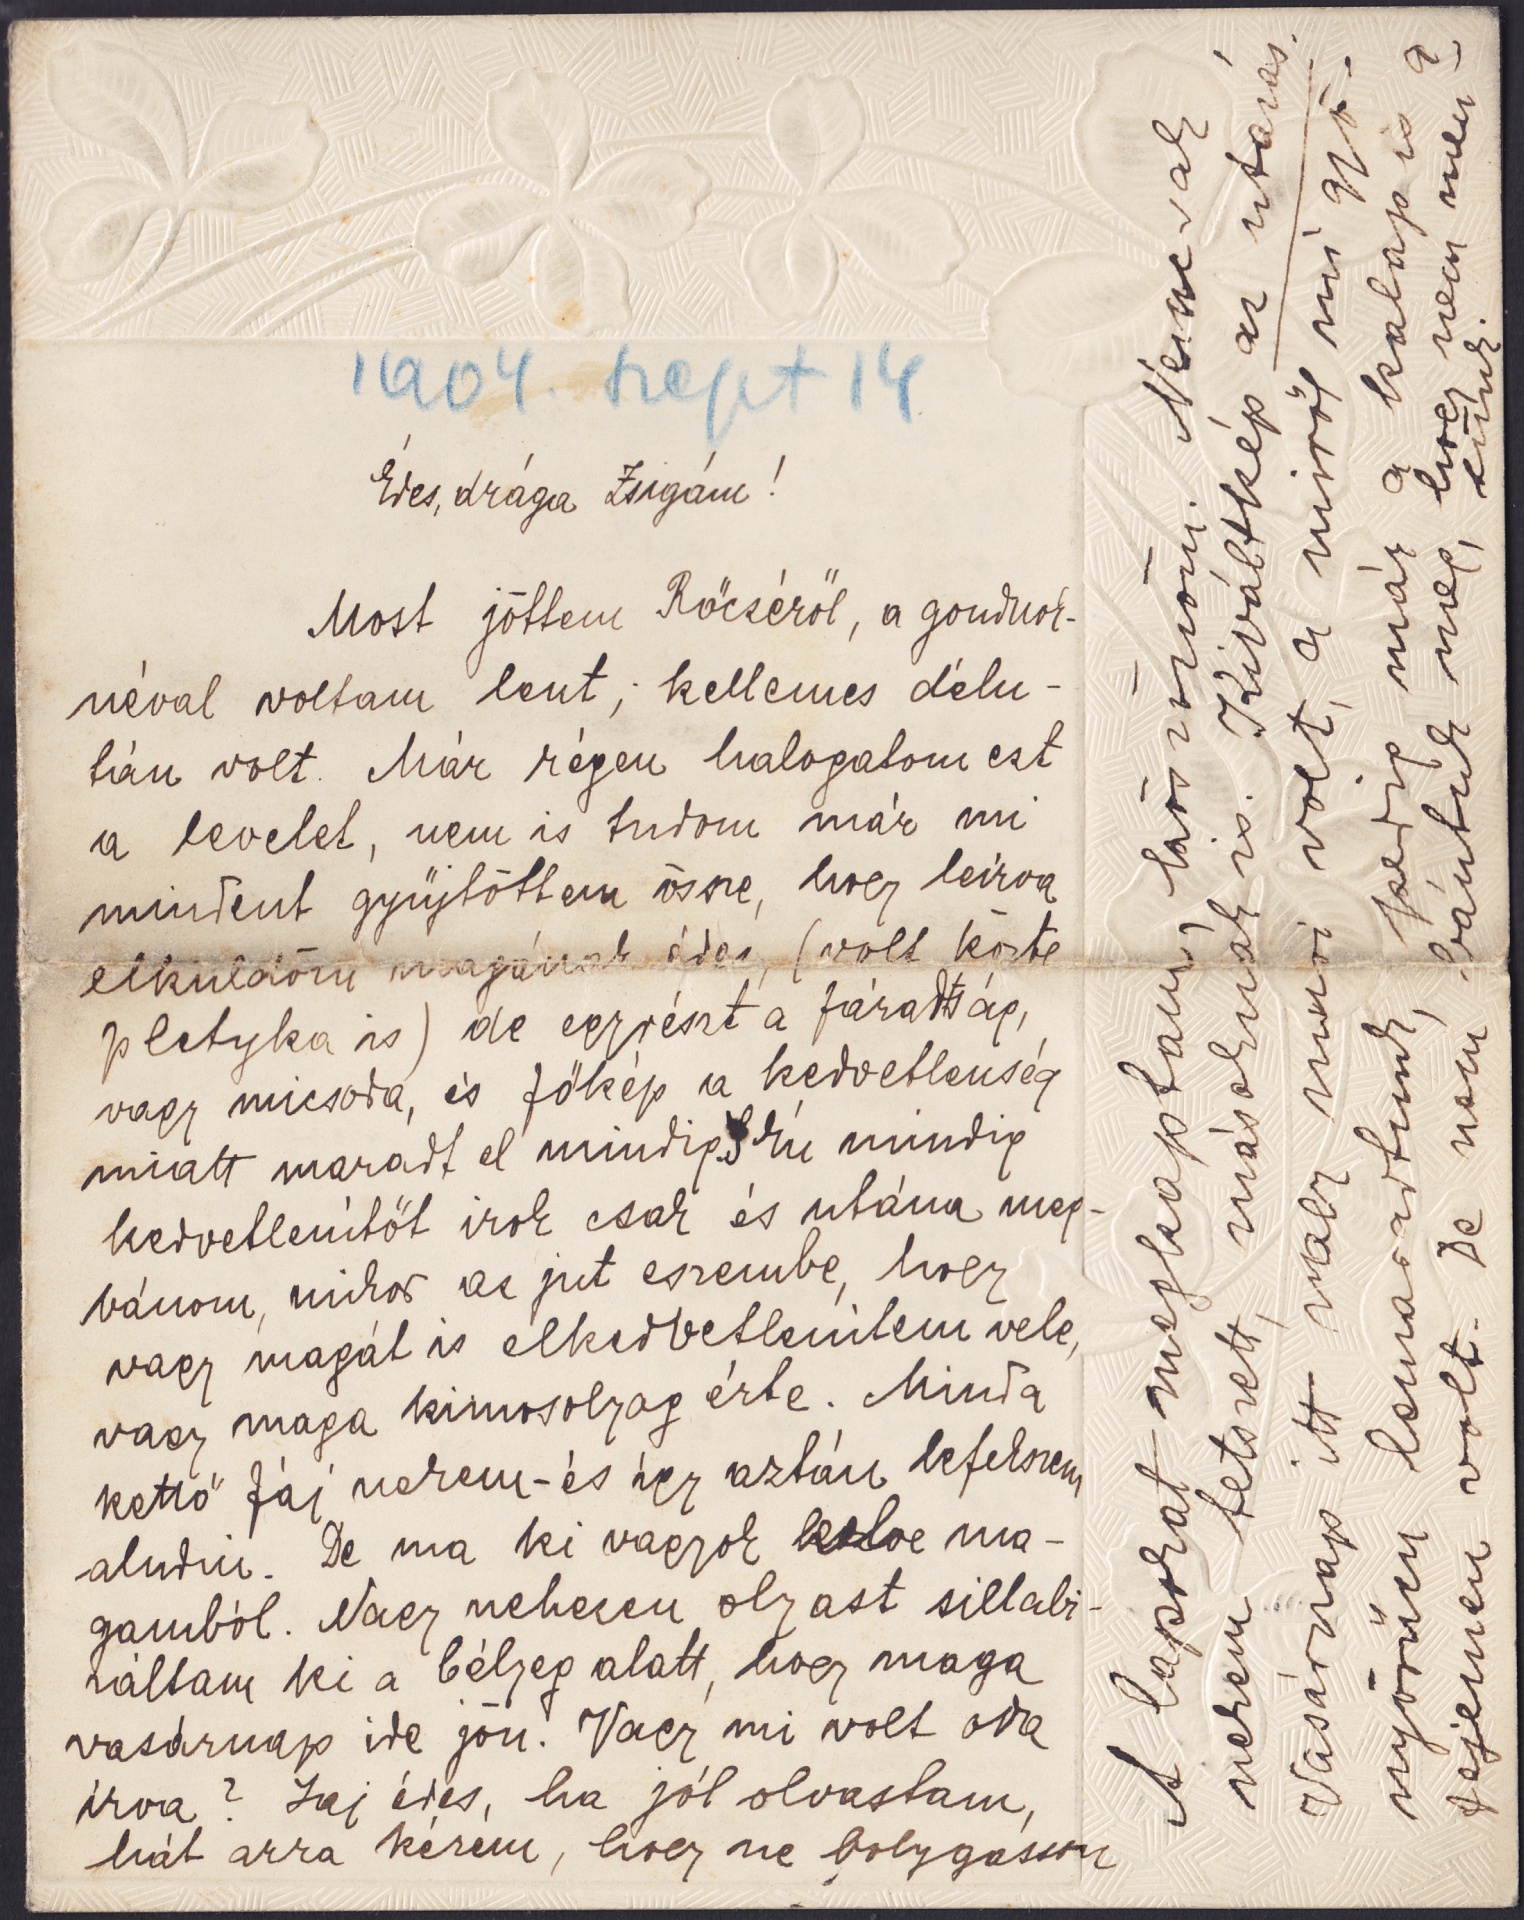 1904. szept 14
Édes, drága Zsigám!
Most jöttem Rőcséről, a gondnok-
néval voltam lent; kellemes délu-
tán volt. Már régen halogatom ezt
a levelet, nem is tudom már mi
mindent gyűjtöttem össze, hogy leírva
elküldöm magának édes, (volt közte
pletyka is) de egyrészt a fáradtság,
vagy micsoda, és főkép a kedvetlenség
miatt maradt el mindig. S én mindig
kedvetlenítőt irok csak és utána meg-
bánom, mikor az jut eszembe, hogy
vagy magát is elkedvetlenítem vele,
vagy maga kimosolyog érte. Minda
kettő fáj nekem - és így aztán lefekszem
aludni. De ma ki vagyok kelve ma-
gamból. Nagy nehezen olyast sillabi-
záltam ki a bélyeg alatt, hogy maga
vasárnap ide jön! Vagy mi volt oda
írva? Jaj édes, ha jól olvastam,
hát arra kérem, hogy ne bolygasson
A lapokat megkaptam, köszönöm. Nemcsak
nekem tetszett, másoknak is. Kiváltkép az utolsó.
Vasárnap itt nagy muri volt, a miről mi
nyörűen lemaradtunk, pedig már a kalap is a
fejemen volt. De nem bántuk meg, hogy nem men-
tünk.